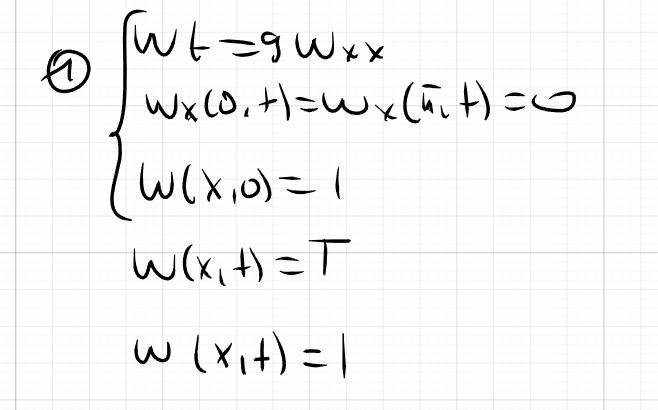 ① Wt = 9 Wxx
Wx(0,t) = Wx(π,t) = 0
W(x,0) = 1
W(x,t) = T
w (x,t) = 1